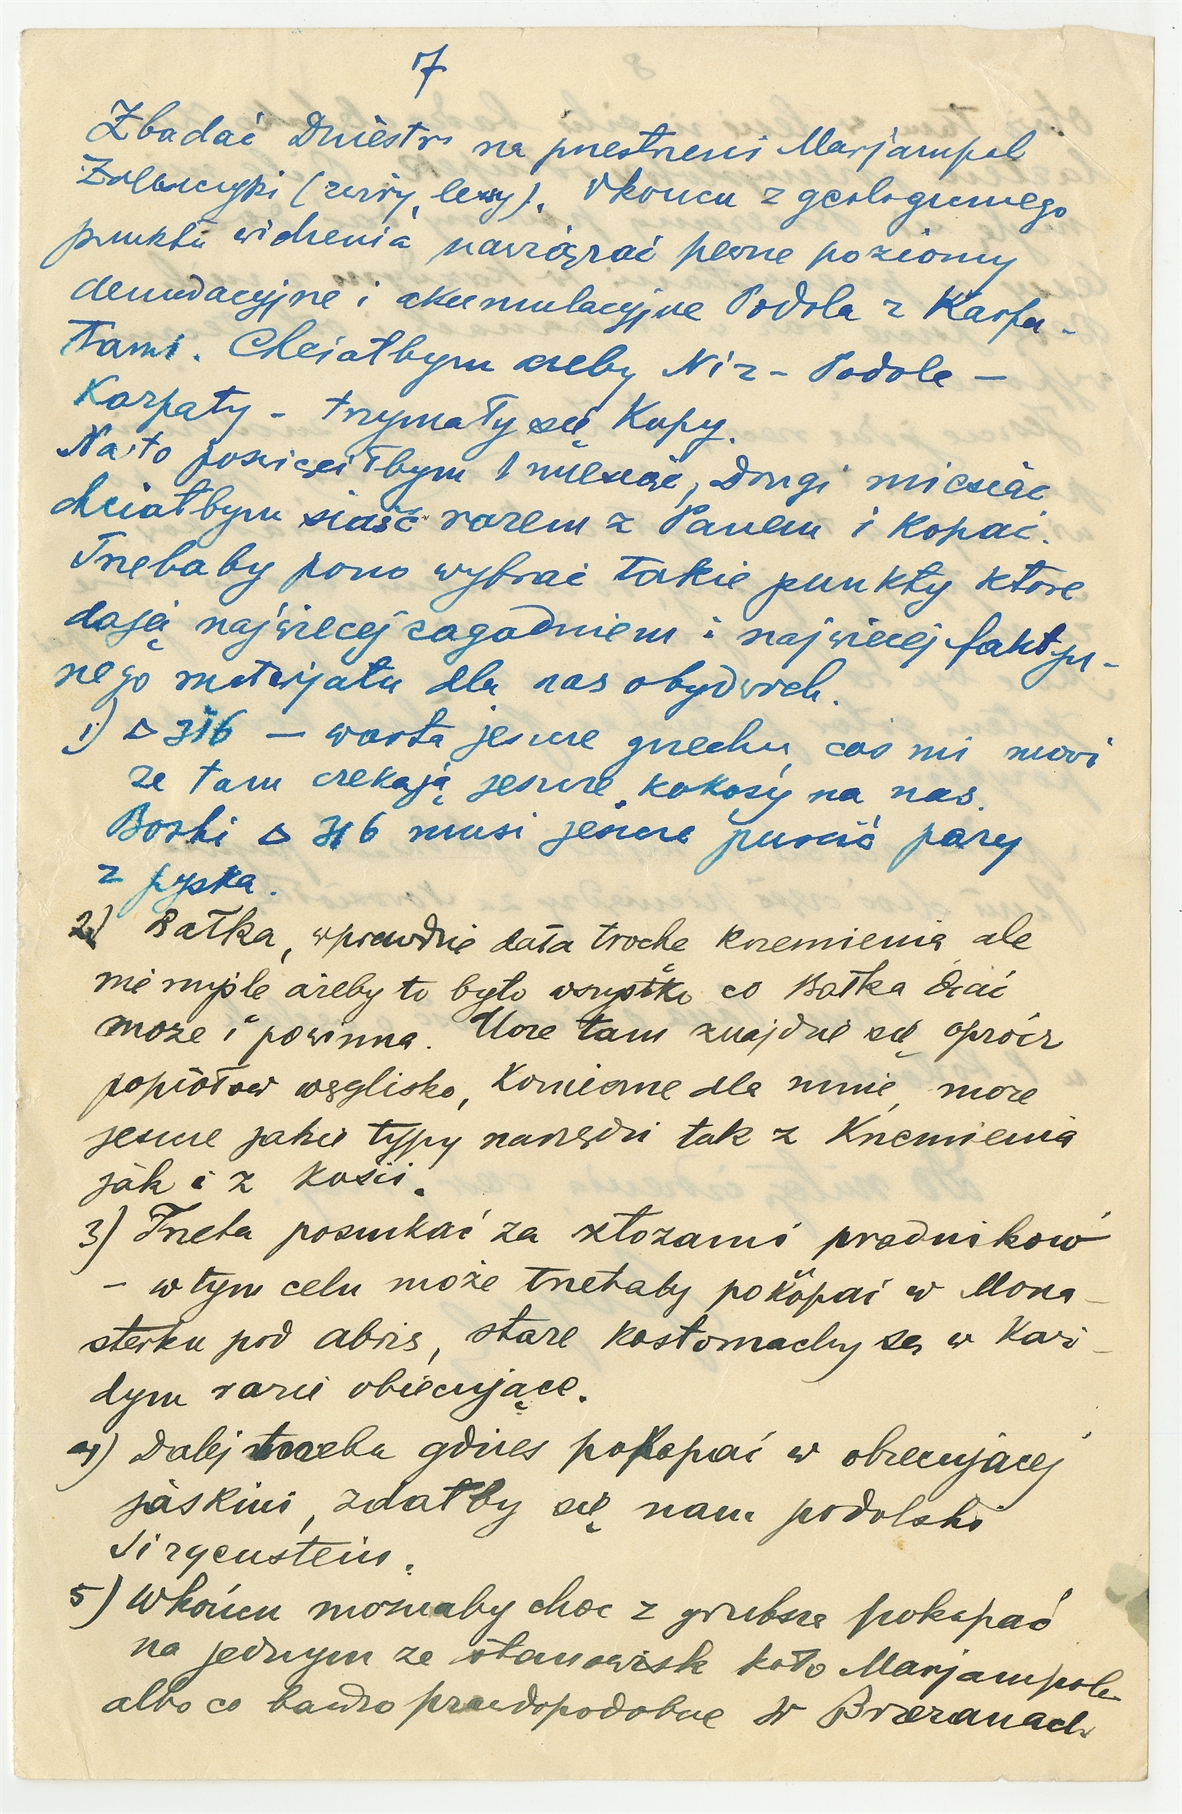 7
Zbadać Dniestr na przestrzeni Marjampol
Zaleszczyki (żwiry, lessy). Wkońcu z geologicznego
punktu widzenia nawiązać pewne poziomy
denudacyjne i akumulacyjne Podola z Karpa-
tami. Chciałbym ażeby Niż - Podole -
Karpaty - trzymały się Kupy.
Na to poświęciłbym 1 miesiąc, Drugi miesiąc
chciałbym siąść razem z Panem i kopać.
Trzebaby pono wybrać takie punkty które
dają najwięcej zagadnień i najwięcej faktycz-
nego materjału dla nas obydwoch.
1) △ 316 — warta jeszcze grzechu, coś mi mówi
że tam czekają jeszcze „kokosy na nas.
Boski △ 316 musi jeszcze puścić pary
z pyska.
2) Bałka, wprawdzie dała trochę krzemienia ale
nie myślę ażeby to było wszystko co Bałka dać
może i powinna. Może tam znajdzie się oprócz
popiołów węglisko, konieczne dla mnie, może
jeszcze jakieś typy narzędzi tak z Krzemienia
jak i z kości.
3) Trzeba poszukać za złożami prądników
- w tym celu może trzebaby pokopać w Mona-
sterku pod abris, stare kostomachy są w każ-
dym razie obiecujące.
4) Dalej trzeba gdzieś pokopać w obiecującej
jaskini, zdałby się nam podolski
Sirgenstein.
5) Wkońcu możnaby choć z grubsza pokopać
na jednym ze stanowisk koło Marjampola
albo co bardzo prawdopodobne w Brzeżanach